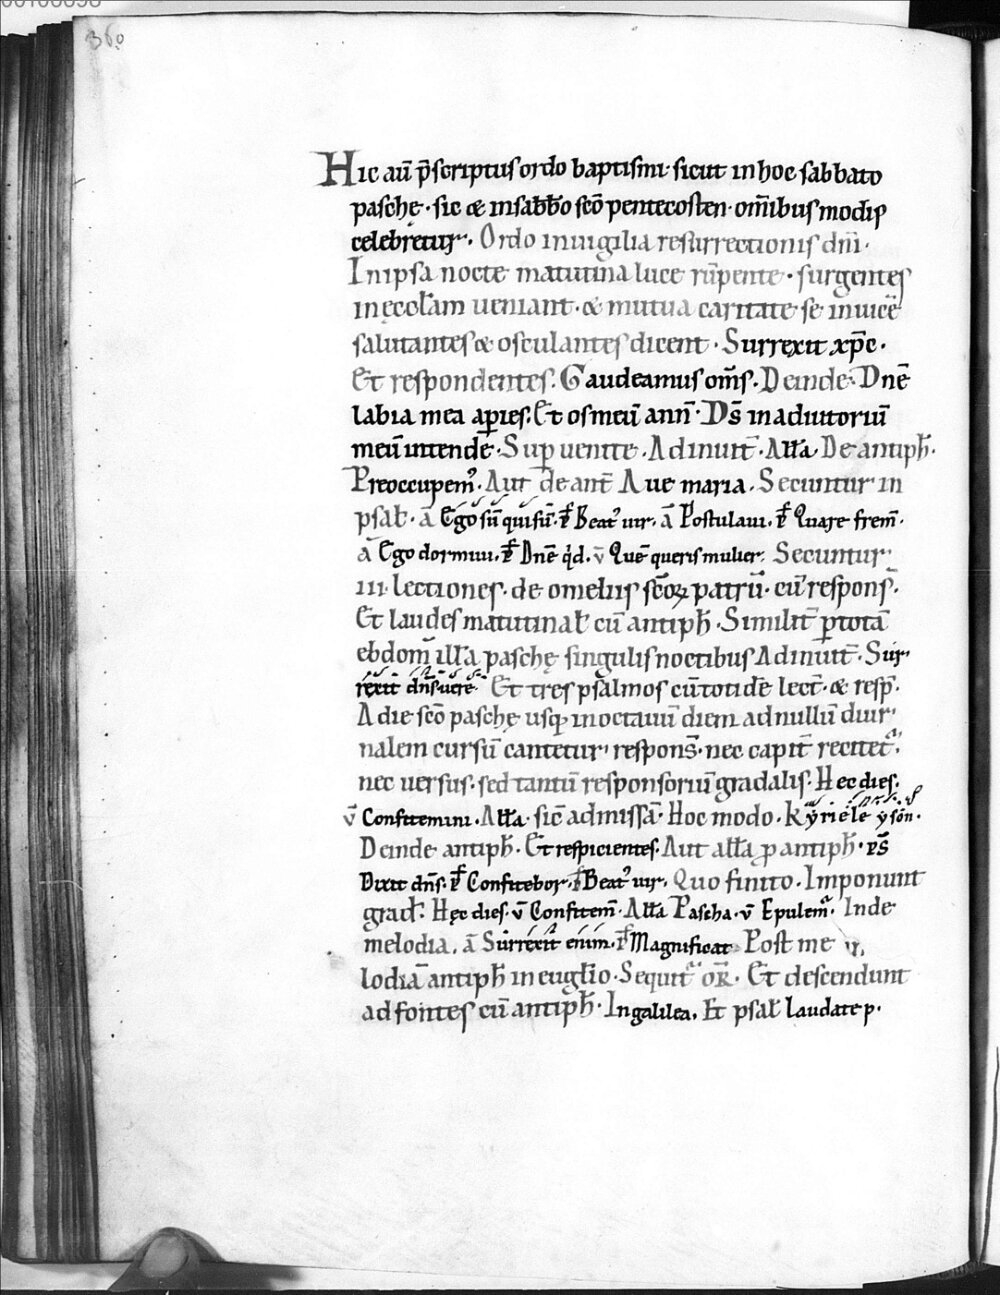 360
Hic aū p̄scriptus ordo baptismi· sicut in hoc sabbato
paschę· sic & in sabb̄o sc̄o pentecosten· om̄ibus modis
celebretur. Ordo in uigilia resurrectionis dn̄i·
In ipsa nocte matutina luce rūpente· surgentes
in ęcctam ueniant· & mutua caritate se inuicē
salutantes & osculantes dicent· Surrexit xp̄c.
Et respondentes. Gaudeamus om̄s. Deinde· Dn̄e
labia mea aperies. Et os meū ann̄· Ds̄ in adiutoriū
meū intende· Sup uenite. Ad inuit̄· Alła· De antiph̄·
Preoccupem᾽. Aut de ant̄ Aue maria. Secuntur in
psał· ā Ego sū qui sū. p̄s Beat᾽ uir. ā Postulaui. p̄s Quare frem̄·
ā Ego dormiui. p̄s Dn̄e q̇d. v̄ Quē queris mulier· Secuntur
iii· lectiones· de omeliis sc̄oꝝ patrū· cū respons̄·
Et laudes matutinał cū antiph̄· Similit̄ p tota
ebdom̄ illa paschę singulis noctibus Ad inuit̄· Sur-
rexit dn̄s uere· Et tres psalmos cū totidē lect̄· & resp̄·
A die sc̄o paschę usq; in octauū diem ad nullū diur-
nalem cursū cantetur respons̄· nec capit̄ recitet᾽·
nec uersus· sed tantū responsoriū gradalis· Hec dies.
v̄ Confitemini· Alła· sic̄ ad missā· Hoc modo· Kyriele yson·
Deinde antiph̄· Et respicientes· Aut alła p antiph̄· ps̄
Dixit dn̄s· p̄s Confitebor. p̄s Beat᾽ uir. Quo finito· Imponunt
grad̄· Hęc dies· v̄ Confitem̄· Alła Pascha· v̄ Epulem᾽· Inde
melodia. ā Surrexit enim. p̄s Magnificat Post me
lodiā antiph̄ in euglio· Sequit᾽ oR̄· Et descendunt
ad fontes cū antiph̄· In galilea. Et psał laudate p.